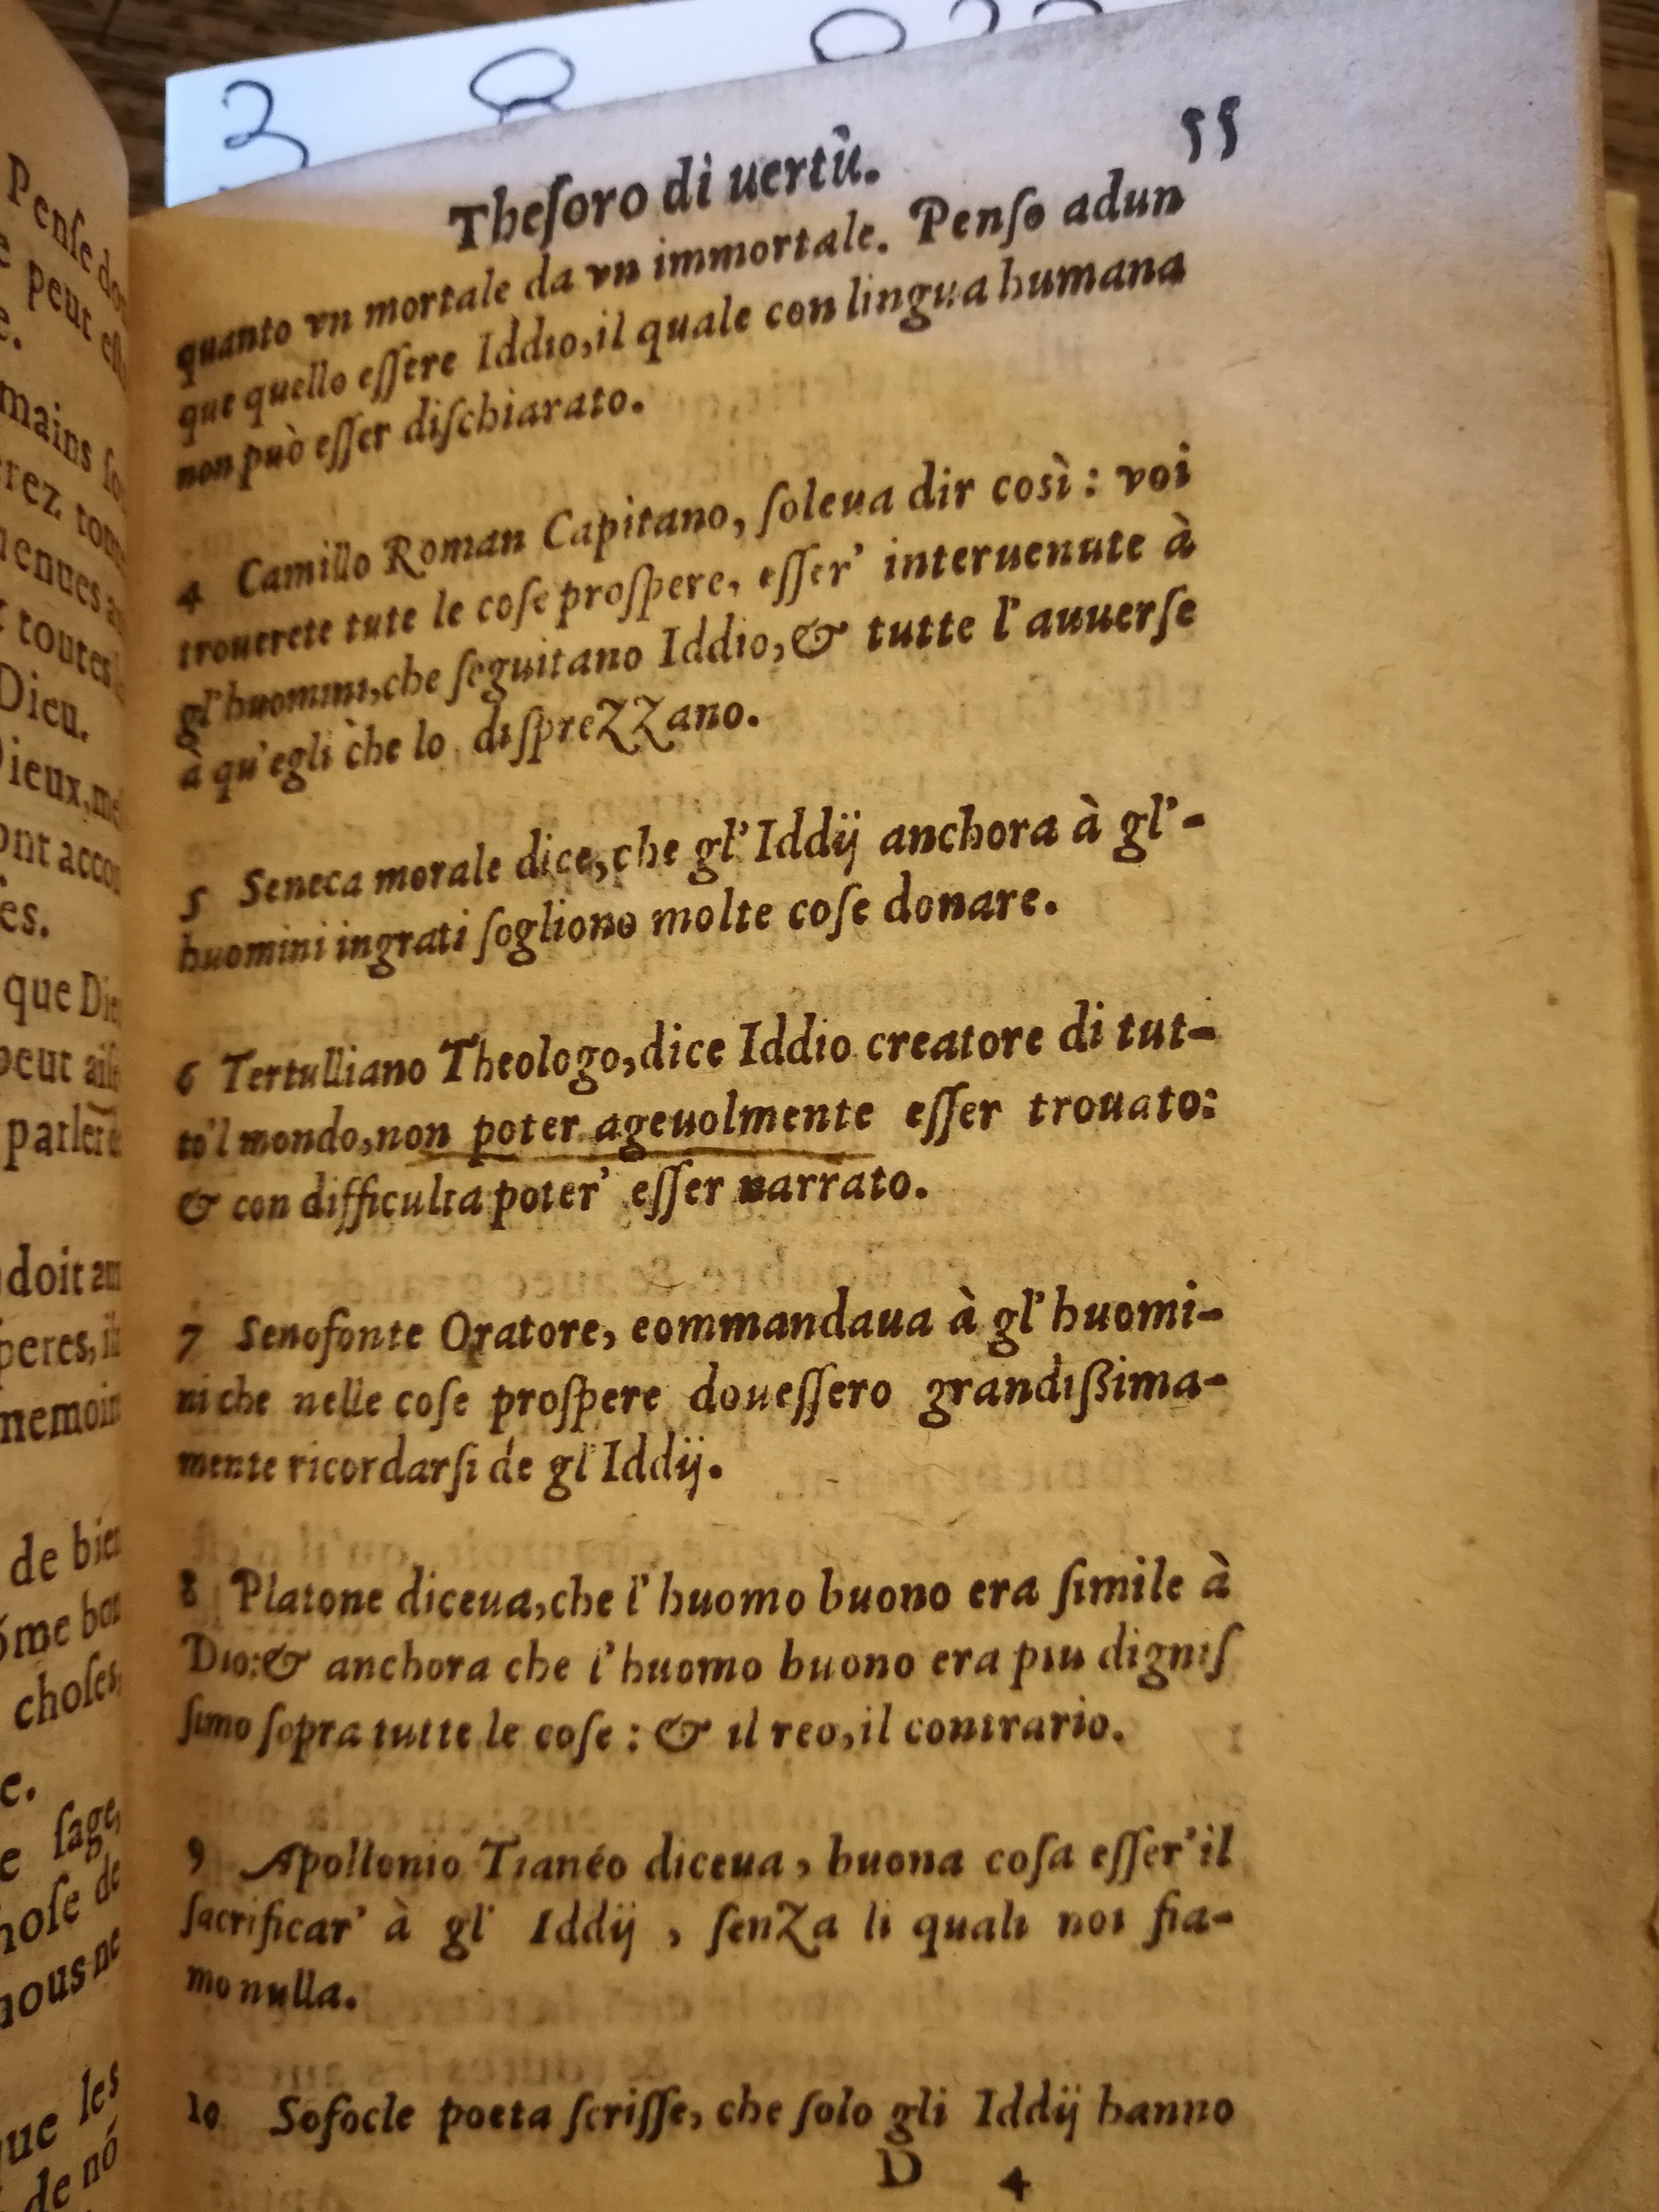 Pense
peut
mains
rez
toutes
Dieu.
es.
que
peut
parler
doit
peres,
de bien
choses,
e.
sage,
hose de
nous ne
ue les
de nó
Thesoro di uertù. 55
quanto vn mortale da vn immortale. Penso adun
que quello eſſere Iddio, il quale con lingua humana
non può eſſer diſchiarato.
4 Camillo Roman Capitano, ſoleua dir così : voi
trouerete tute le coſe proſpere, eſſer’ interuenute à
gl’huomini, che ſeguitano Iddio, & tutte l’auuerſe
à qu’egli che lo diſprezzano.
5 Seneca morale dice, che gl’Iddij anchora à gl’-
huomini ingrati ſogliono molte coſe donare.
6 Tertulliano Theologo, dice Iddio creatore di tut-
to’l mondo, non poter ageuolmente eſſer trouato:
& con difficulta poter’ eſſer narrato.
7 Senofonte Oratore, commandaua à gl’huomi-
ni che nelle coſe proſpere doueſſero grandiſsima-
mente ricordarſi de gl’Iddij.
8 Platone diceua, che l’huomo buono era ſimile à
Dio: & anchora che l’huomo buono era piu digniſ
ſimo ſopra tutte le coſe : & il reo, il contrario.
9 Apollonio Tianéo diceua, buona coſa eſſer’il
ſacrificar’ à gl’ Iddij , ſenza li quali noi ſia-
mo nulla.
10 Sofocle poeta ſcriſſe, che ſolo gli Iddij hanno
D 4